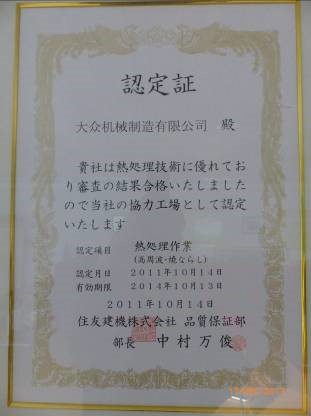 認定証
大众机械制造有限公司 殿
貴社は熱処理技術に優れてお
り審査の結果合格いたしました
ので当社の協力工場として認定
いたします
認定項目 熱処理作業
(高周波・焼ならし)
認定月日 2011年10月14日
有効期限 2014年10月13日
2011年10月14日
住友建機株式会社 品質保証部
部長 中村万俊